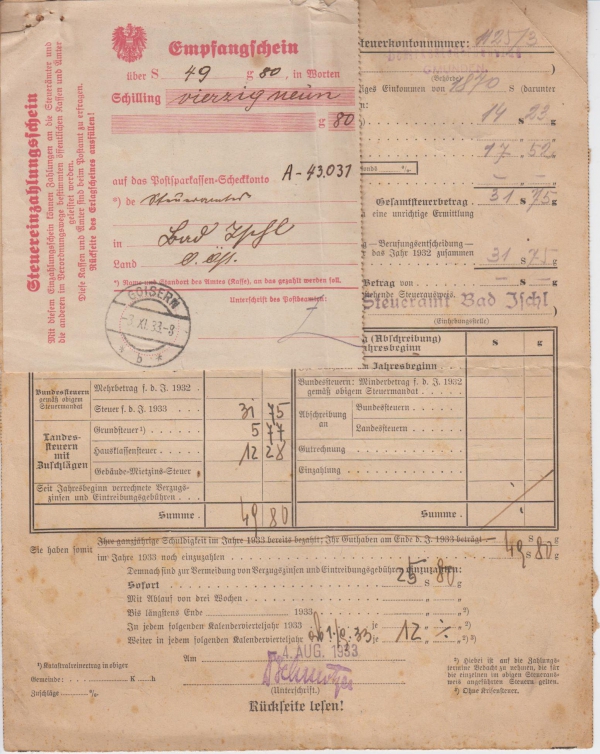 Steuereinzahlungsschein
Mit diesem Einzahlungsschein können Zahlungen an die Steuerämter und
die anderen im Verordnungswege bestimmten öffentlichen Kassen und Ämter
geleistet werden.
Diese Kassen und Ämter sind beim Postamt zu erfragen.
Rückseite des Erlagscheines ausfüllen!
Empfangschein
über S 49 g 80, in Worten
Schilling vierzig neun
g 80
auf das Postsparkassen-Scheckkonto A-43.031
*) de Steueramtes
in Bad Ischl
Land O.Öst.
*) Name und Standort des Amtes (Kasse), an das gezahlt werden soll.
Unterschrift des Postbeamten:
GOISERN
3.XI.33-8
* b *
Steuerkontonummer: 1125/3
GMUNDEN
)
iges Einkommen von 1870 S (darunter
14 23
17 52
ends %
Gesamtsteuerbetrag . 31 S 75 g
a eine unrichtige Ermittlung
- Berufungsentscheidung -
das Jahr 1932 zusammen 31 S 75 g
Betrag von . – S – g
stehende Steuerausweis.
Steueramt Bad Ischl
(Einhebungsstelle)
g (Abschreibung) S g
Jahresbeginn
Bundessteuern gemäß obigem Steuermandat
Mehrbetrag f. d. J. 1932
Steuer f. d. J. 1933 . . 31 75
Landessteuern mit Zuschlägen
Grundsteuer¹) . . . . 5 77
Hausklassensteuer . . . 12 28
Gebäude-Mietzins-Steuer
Seit Jahresbeginn verrechnete Verzugszinsen und Eintreibungsgebühren . . .
Summe . 49 80
Bundessteuern: Minderbetrag f. d. J. 1932
gemäß obigem Steuermandat . . . .
Abschreibung an
Bundessteuern . . .
Landessteuern . . .
Gutrechnung . . . .
Einzahlung . . . .
Summe .
Sie haben somit
Ihre ganzjährige Schuldigkeit im Jahre 1933 bereits bezahlt; Ihr Guthaben am Ende d. J. 1933 beträgt S g
im Jahre 1933 noch einzuzahlen 49 S 80 g
Demnach sind zur Vermeidung von Verzugszinsen und Eintreibungsgebühren einzuzahlen:
Sofort 25 S 80 g
Mit Ablauf von drei Wochen „ „
Bis längstens Ende 1933 „ „ ²)
In jedem folgenden Kalendervierteljahr 1933 je „ „ ²)
Weiter in jedem folgenden Kalendervierteljahr ab 1./10.33 je 12 „ ²) ³)
Am 4. AUG. 1933
(Unterschrift.)
¹) Katastralreinertrag in obiger
Gemeinde: K h
Zuschläge %
²) Hiebei ist auf die Zahlungstermine Bedacht zu nehmen, die für
die einzelnen im obigen Steuerausweis angeführten Steuern gelten.
³) Ohne Krisensteuer.
Rückseite lesen!